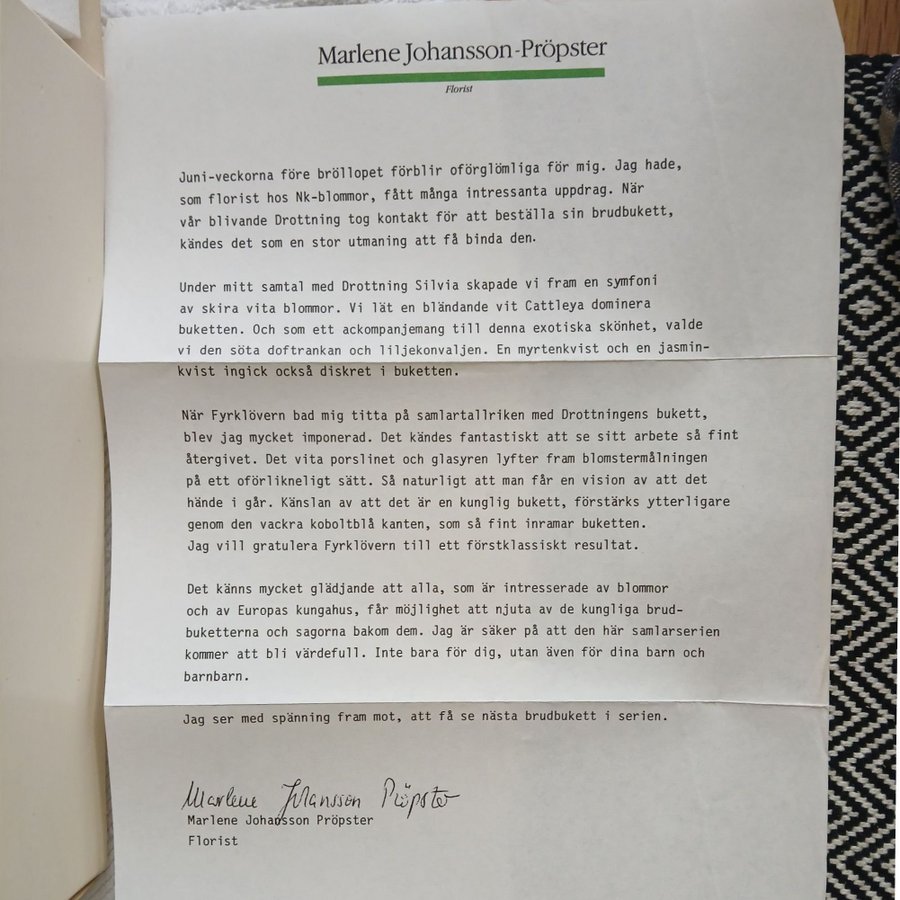 Marlene Johansson-Pröpster
Florist
Juni-veckorna före bröllopet förblir oförglömliga för mig. Jag hade,
som florist hos Nk-blommor, fått många intressanta uppdrag. När
vår blivande Drottning tog kontakt för att beställa sin brudbukett,
kändes det som en stor utmaning att få binda den.
Under mitt samtal med Drottning Silvia skapade vi fram en symfoni
av skira vita blommor. Vi lät en bländande vit Cattleya dominera
buketten. Och som ett ackompanjemang till denna exotiska skönhet, valde
vi den söta doftrankan och liljekonvaljen. En myrtenkvist och en jasmin-
kvist ingick också diskret i buketten.
När Fyrklövern bad mig titta på samlartallriken med Drottningens bukett,
blev jag mycket imponerad. Det kändes fantastiskt att se sitt arbete så fint
återgivet. Det vita porslinet och glasyren lyfter fram blomstermålningen
på ett oförlikneligt sätt. Så naturligt att man får en vision av att det
hände i går. Känslan av att det är en kunglig bukett, förstärks ytterligare
genom den vackra koboltblå kanten, som så fint inramar buketten.
Jag vill gratulera Fyrklövern till ett förstklassiskt resultat.
Det känns mycket glädjande att alla, som är intresserade av blommor
och av Europas kungahus, får möjlighet att njuta av de kungliga brud-
buketterna och sagorna bakom dem. Jag är säker på att den här samlarserien
kommer att bli värdefull. Inte bara för dig, utan även för dina barn och
barnbarn.
Jag ser med spänning fram mot, att få se nästa brudbukett i serien.
Marlene Johansson Pröpster
Marlene Johansson Pröpster
Florist